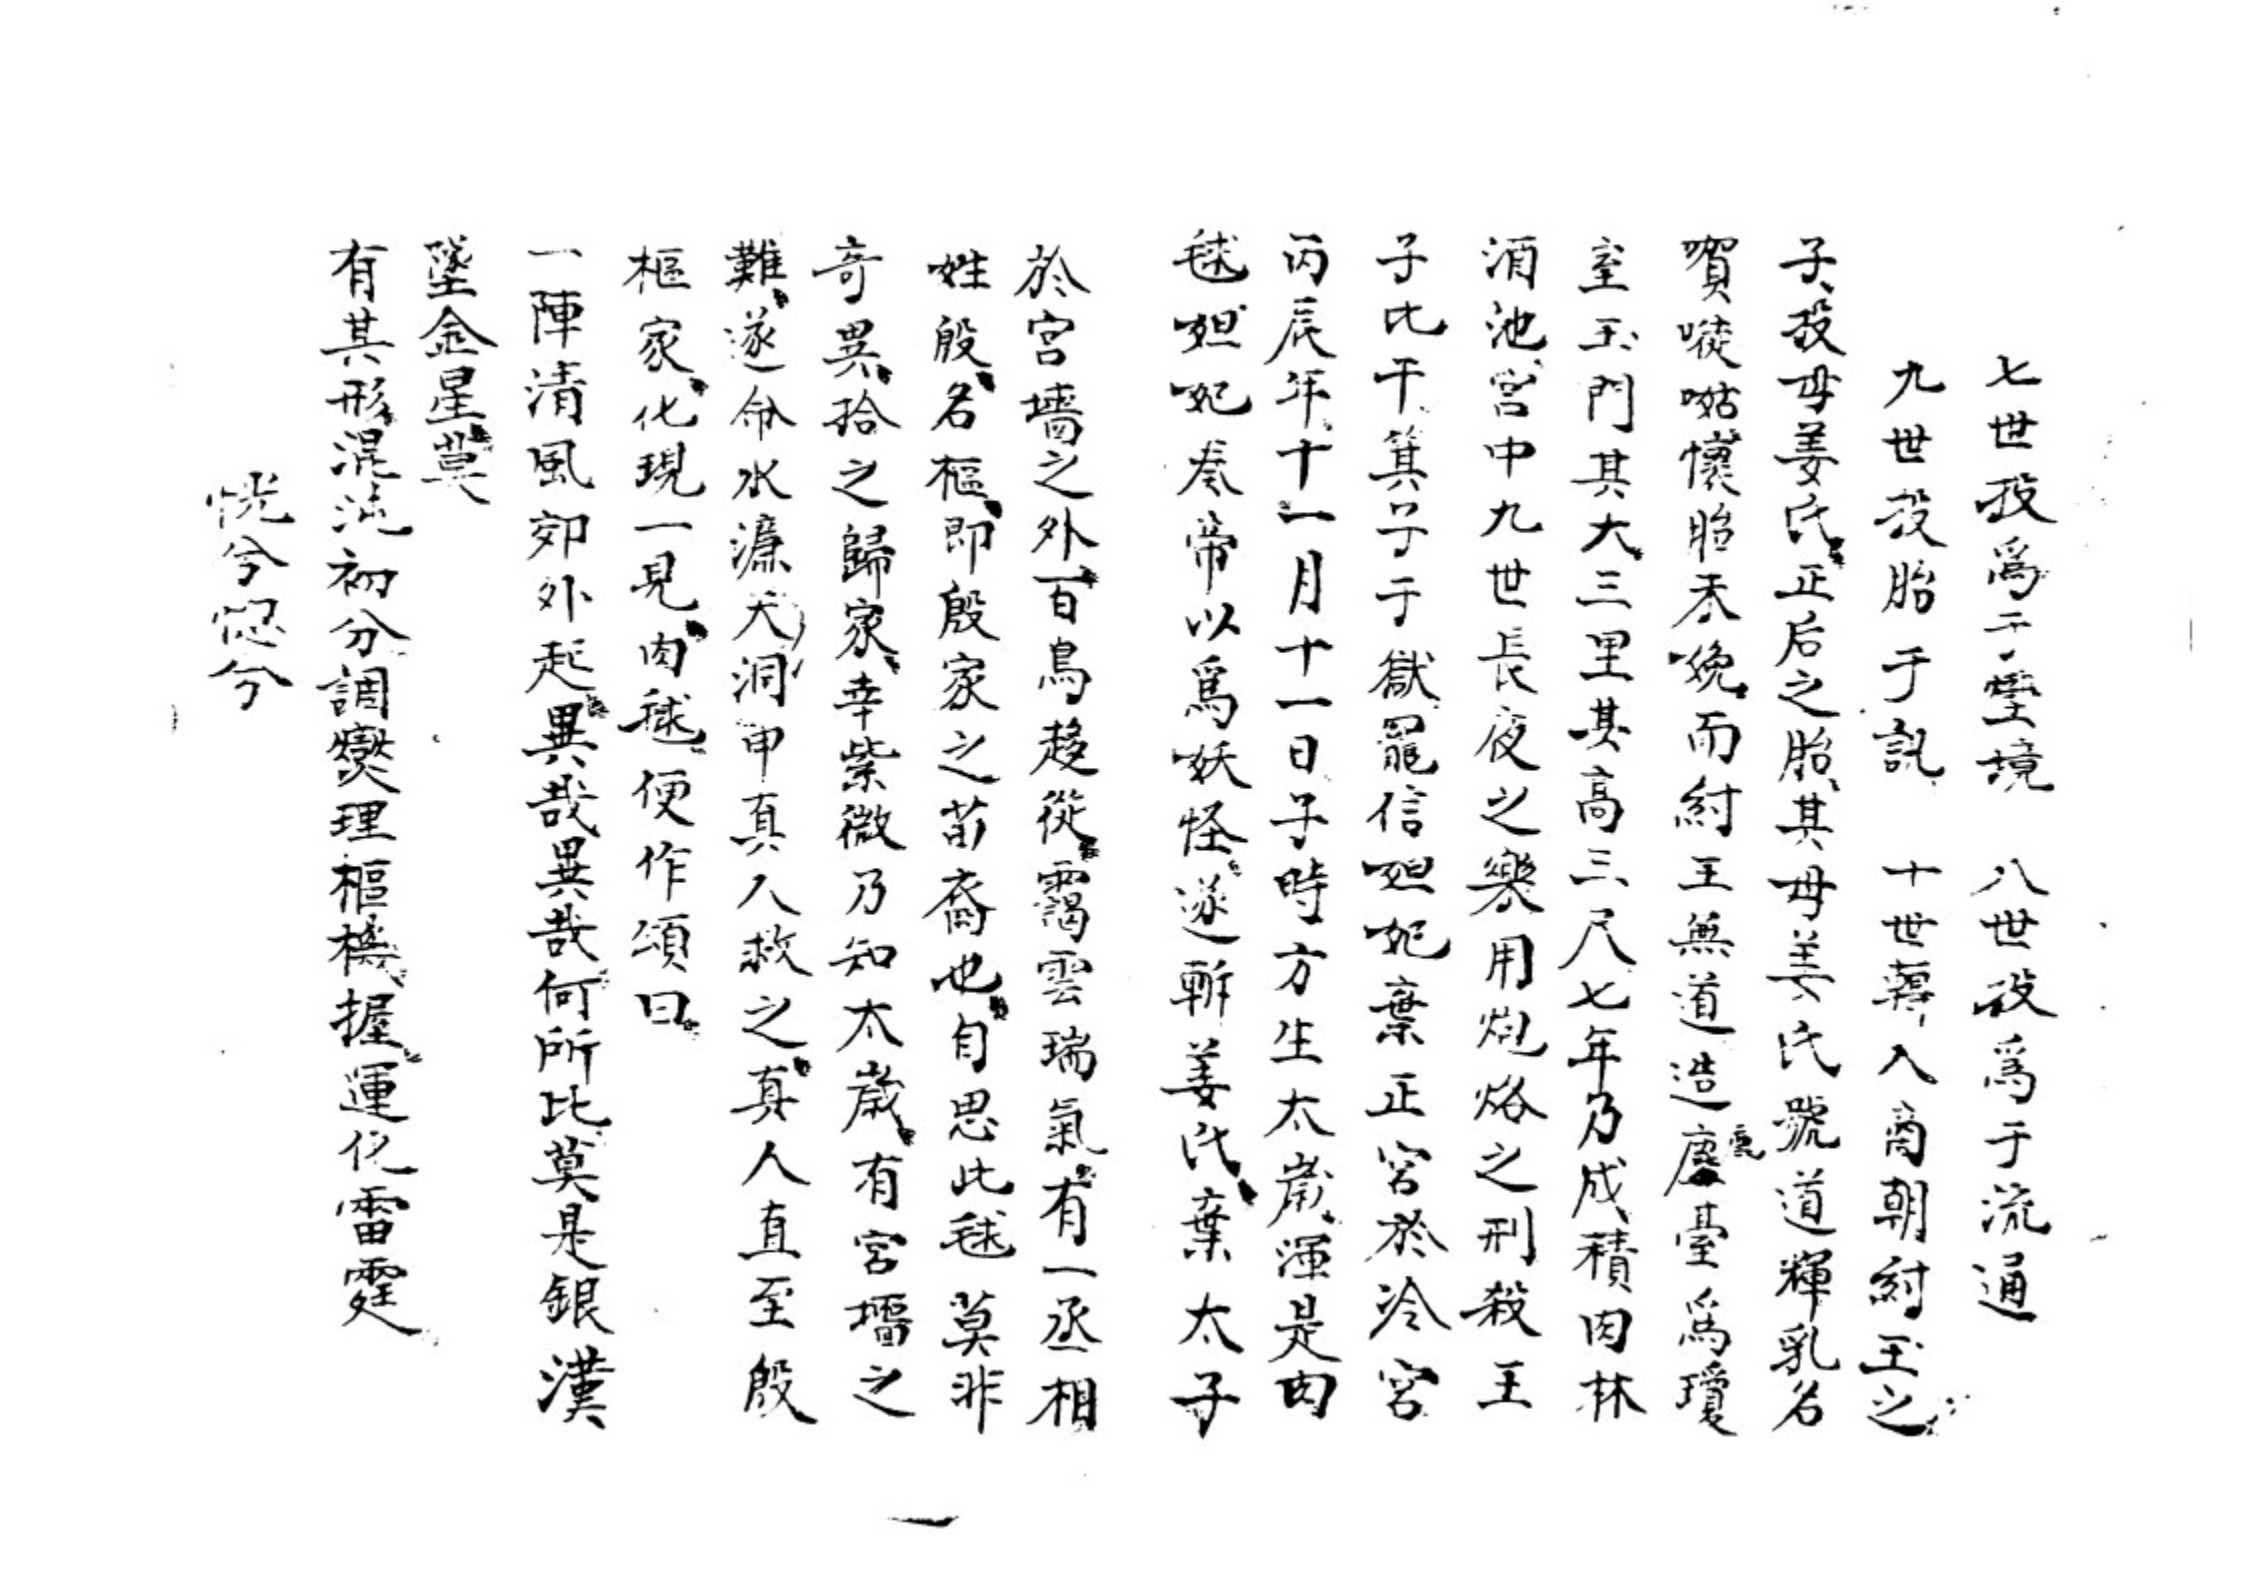 七世投爲于墼境　八世投爲于流通
九世投胎于訊　十世轉入商朝紂王之
子投母姜氏正后之胎其母姜氏號道輝乳名
㗎㗭㗅懷胎未娩而紂王無道造鹿臺爲瓊
室玉門其大三里其高三尺七年乃成積肉林
酒池宮中九世長夜之樂用炮烙之刑殺王
子比干箕子于獄寵信妲妃棄正宮於冷宮
丙辰年十一月十一日子時方生太歲渾是肉
毬妲妃奏帝以爲妖怪遂斬姜氏棄太子
於宮墻之外百鳥趍從靄雲瑞氣有一丞相
姓殷名樞即殷家之苗裔也自思此毬莫非
奇異拾之歸家幸紫微乃知太歲有宮壻之
難遂命水濂天洞申真人救之真人直至殷
樞家化現一見肉毬便作頌曰
一陣清風郊外起異哉異哉何所比莫是銀漢
墜金星莫
有其形混沌初分調爕理樞機握運化雷霆
恍兮惚兮